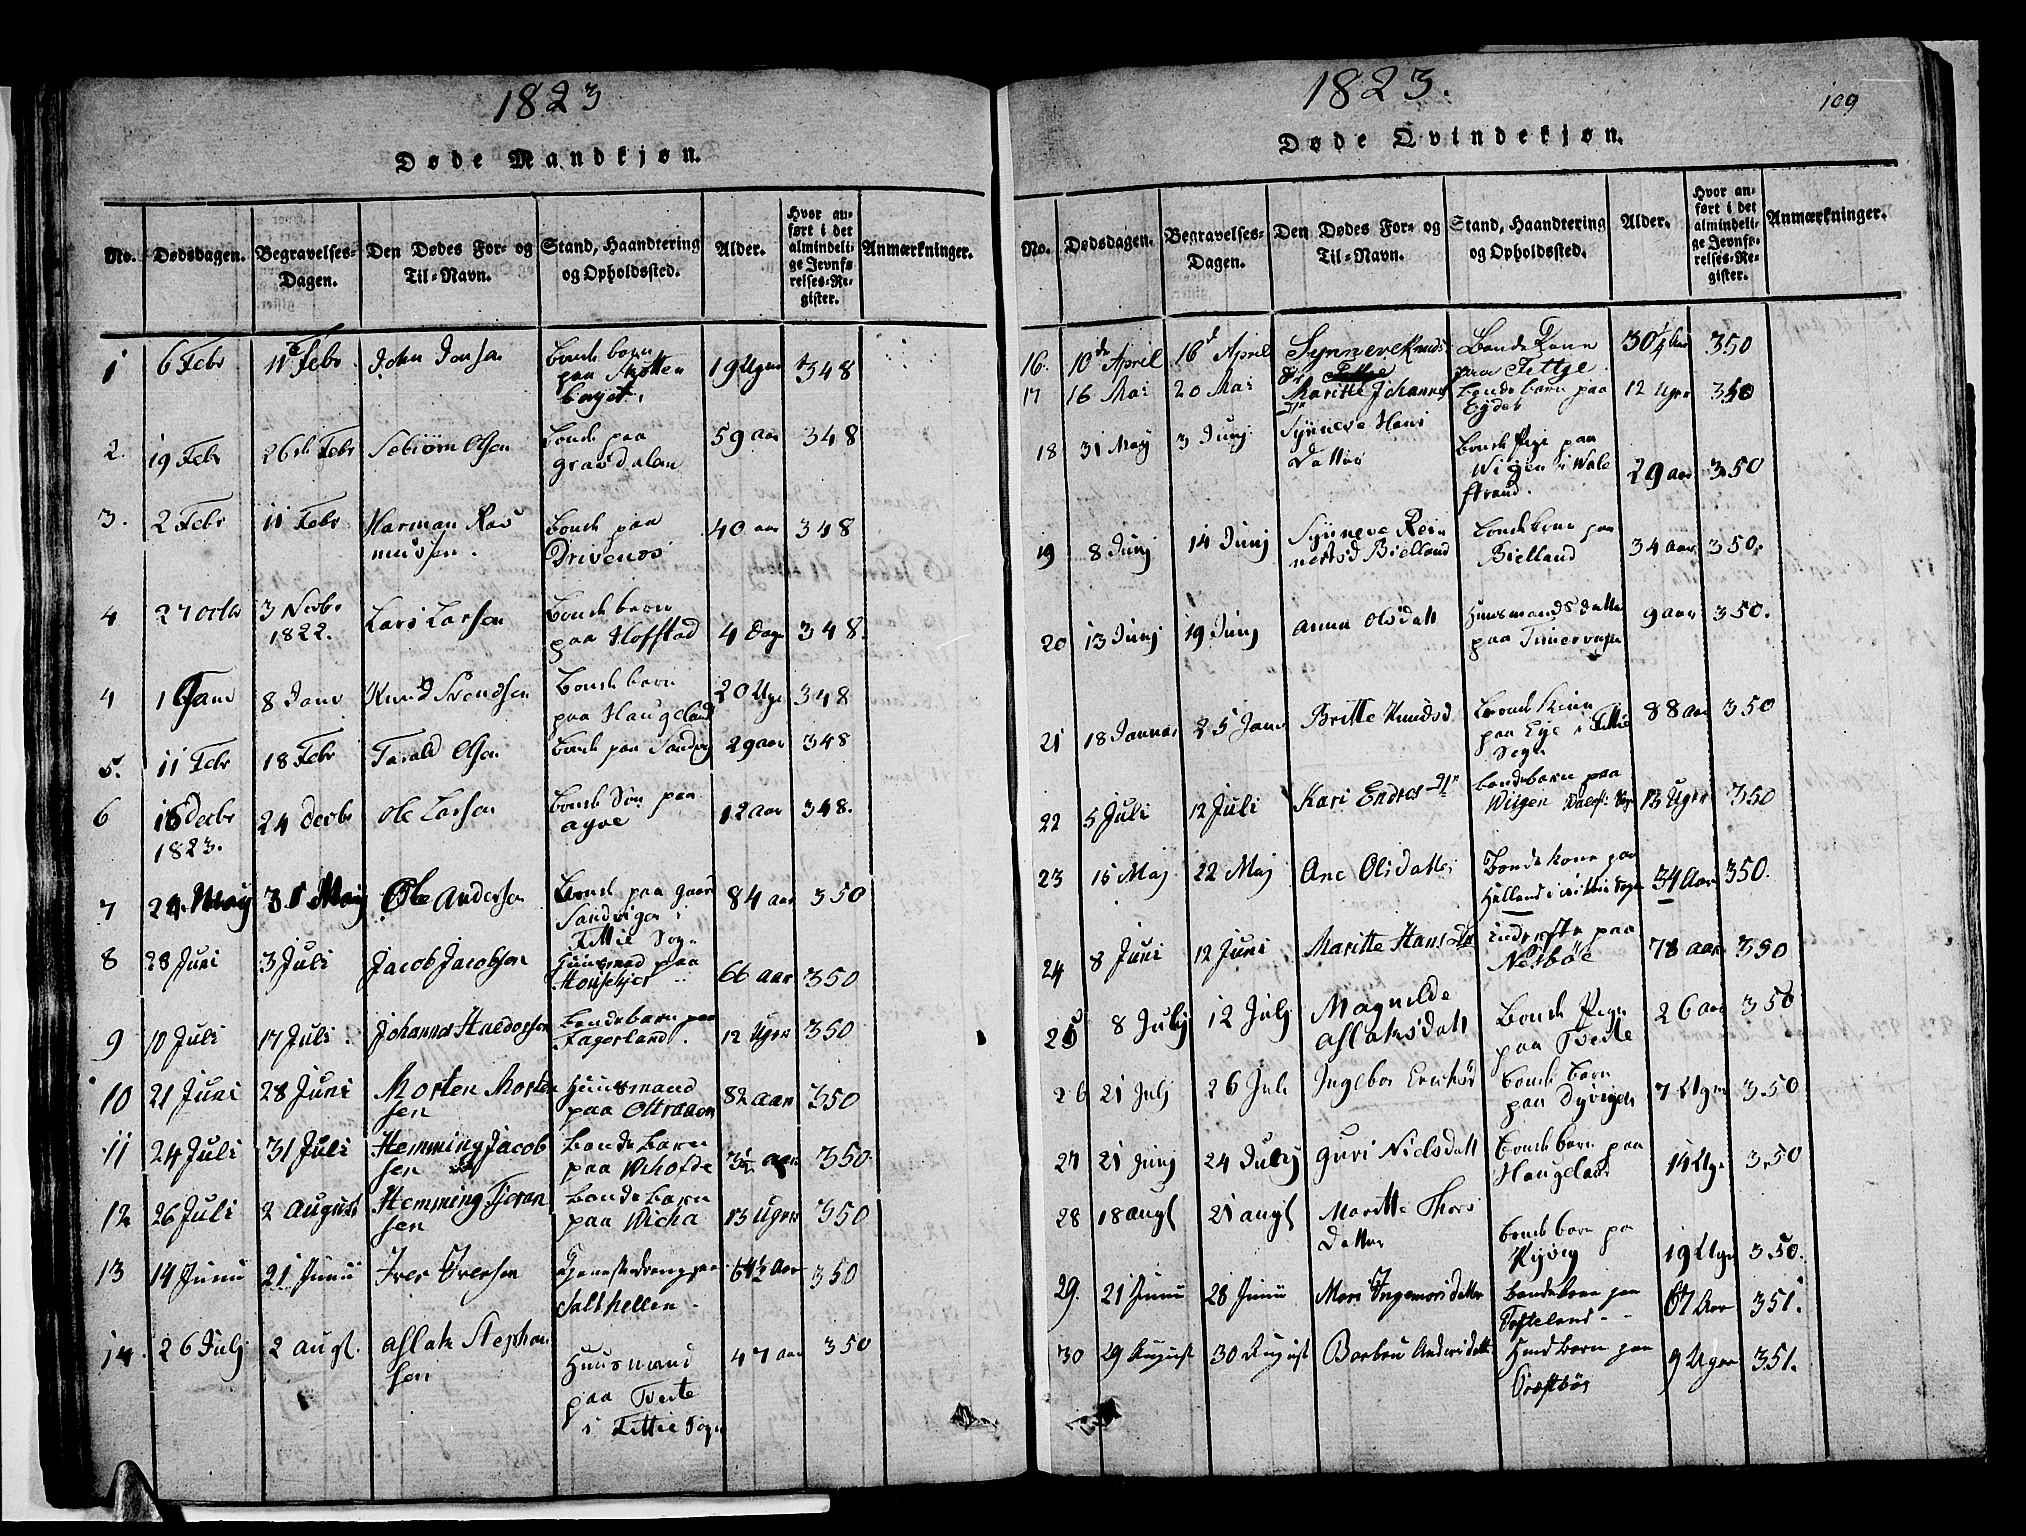 1823
Døde Mandkjøn.
No. Dødsdagen. Begravelses-Dagen. Den Dødes For- og Til-Navn. Stand, Haandtering og Opholdssted. Alder. Hvor anført i det almindelige Jevnførelses-Register. Anmærkninger.
1 6 Febr 11te Febr John Jonsen Bonde born paa 19 Uger 348
2. 19 Febr 26de Febr Olsen Bonde paa Gravdalen 59 aar 348
3. 2 Febr 11 Febr Harman Rasmussen. Bonde paa Drivenæs 40 aar 348
4 27 octbr 3 Novbr 1822. Lars Larsen Bonde barn paa Hofstad 4 Dage 348.
4 1 Janr 8 Janr Knud Svendsen Bonde barn paa Haugeland 20 Uger 348
5. 11 Febr 18 Febr Tarald Olsen Bonde paa Sandvig 29 aar 348
6 16 Decbr 1823. 24 Decbr Ole Larsen Bonde Søn paa 12 aar 348.
7 24 May 31 May Ole Andersen Bonde paa Gaar Sandvigen i Fittie Sogn 84 aar 350
8 28 Juni 3 Juli Jacob Jacobsen Huusmand paa 66 aar 350
9 10 Juli 17 Juli Johannes Haldorsen Bondebarn paa Fagerland. 12 Uger 350
10 21 Juni 28 Juni Morten Mortensen Huusmand paa 82 aar 350
11 24 Juli 31 Juli Hemming Jacobsen Bonde Barn paa 3½ aar 350
12 26 Juli 2 August Hemming Tieransen Bonde Barn paa Wicha 13 Uger 350
13 14 Junii 21 Junii Iver Iversen Tjenestedreng paa Salthellen. aar 350
14. 26 Julj 2 augt. Aslak Stephansen Huusmand paa Tveite i Fittie Sogn 47 aar 350
1823.
109
Døde Qvindekjøn.
No. Dødsdagen. Begravelses-Dagen. Den Dødes For- og Til-Navn. Stand, Haandtering og Opholdssted. Alder. Hvor anført i det almindelige Jevnførelses-Register. Anmærkninger.
16. 10de April 16de April Synneve Knudsdtr Bonde Kone paa Fettge. 30¼ Aar 350
17 16 Mai 20 Mai Maritte Johannesdtr bondebarn paa Eydet 12 Uger 350
18 31 May 3 Junj Synneve Hansdatter Bonde Pige paa Wigen i Walestrand. 29 aar 350
19 8 Junj 14 Junj Synneve Reinertsd Bielland Bonde kone paa Bielland 34 aar 350.
20 13 Junj 19 Junj Anna Olsdatt Huusmandsdatter paa 9 aar 350.
21 18 Januar 25 Janr Britte Knudsd Bonde Kone paa Eye i Fittie Sogn 88 aar 350
22 5 Juli 12 Juli Kari Endresdtr bondebarn paa Wiigen 13 Uger 350
23 15 Maj 22 Maj Ane Olsdatter Bonde kone paa Hulland i Fittie Sogn 34 Aar 350.
24 8 Juni 12 Juni Maritte Hansdtr inderste paa Nesbøe 78 aar 350
25 8 Julj 12 Julj Magnilde Aslaksdatt Bonde Pige paa Tveite 26 aar 350
26 21 Julj 26 Jul Ingebor Eriksd Bonde barn paa Dyvigen 7 Uger 350
27 21 Junj 24 Julj Guri Nielsdatt Bonde barn paa Haugeland 14 Uger 350
28 18 augt 21 augt Maritte Thorsdatter bonde barn paa 19 Uger 350.
29. 21 Junii 28 Junii Mari Ingemorsdatter bondekone paa 67 Aar 351.
30 29 August 30 August Barbru Andersdatt Huusd barn paa Præstbøe 9 Uger 351.